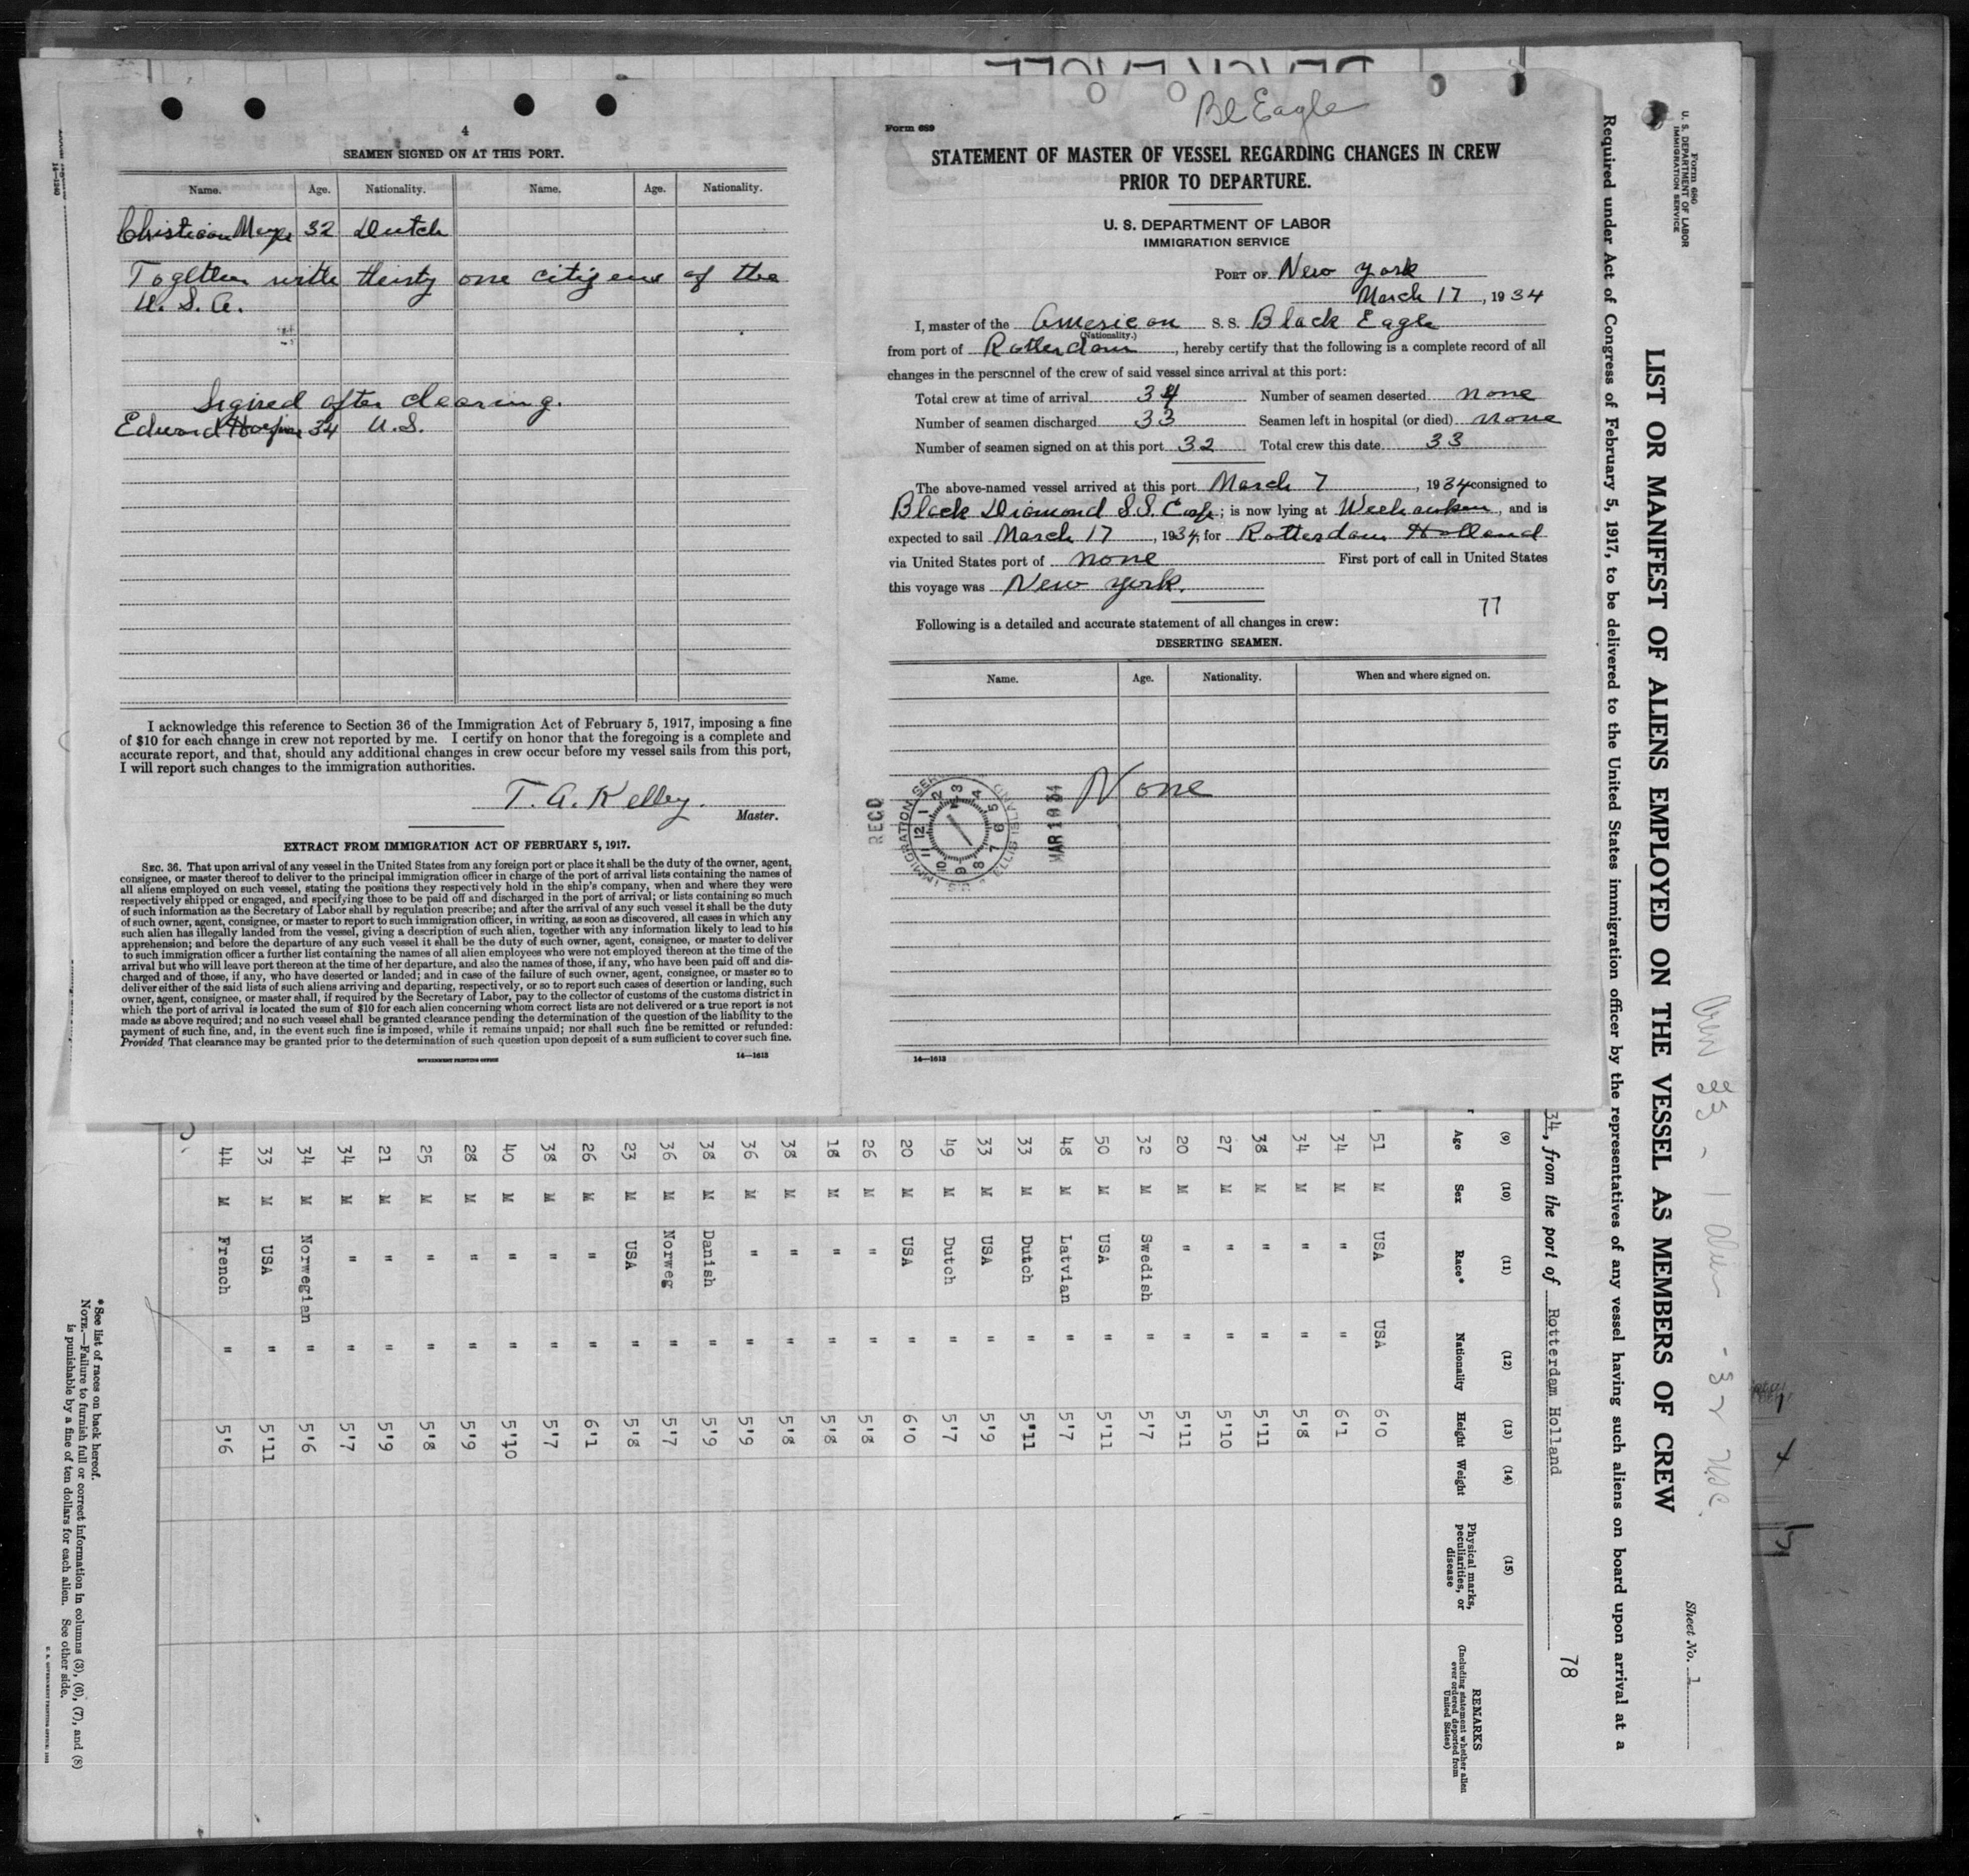 4
SEAMEN SIGNED ON AT THIS PORT.
Name. Age. Nationality. Name. Age. Nationality.
Christiaan 32 Dutch
Together with thirty one citizens of the
U. S. A.
Signed after clearing.
Edward 34 U.S.
I acknowledge this reference to Section 36 of the Immigration Act of February 5, 1917, imposing a fine
of $10 for each change in crew not reported by me. I certify on honor that the foregoing is a complete and
accurate report, and that, should any additional changes in crew occur before my vessel sails from this port,
I will report such changes to the immigration authorities.
T. A. Kelley.
Master.
EXTRACT FROM IMMIGRATION ACT OF FEBRUARY 5, 1917.
SEC. 36. That upon arrival of any vessel in the United States from any foreign port or place it shall be the duty of the owner, agent,
consignee, or master thereof to deliver to the principal immigration officer in charge of the port of arrival lists containing the names of
all aliens employed on such vessel, stating the positions they respectively hold in the ship's company, when and where they were
respectively shipped or engaged, and specifying those to be paid off and discharged in the port of arrival; or lists containing so much
of such information as the Secretary of Labor shall by regulation prescribe; and after the arrival of any such vessel it shall be the duty
of such owner, agent, consignee, or master to report to such immigration officer, in writing, as soon as discovered, all cases in which any
such alien has illegally landed from the vessel, giving a description of such alien, together with any information likely to lead to his
apprehension; and before the departure of any such vessel it shall be the duty of such owner, agent, consignee, or master to deliver
to such immigration officer a further list containing the names of all alien employees who were not employed thereon at the time of the
arrival but who will leave port thereon at the time of her departure, and also the names of those, if any, who have been paid off and dis-
charged and of those, if any, who have deserted or landed; and in case of the failure of such owner, agent, consignee, or master so to
deliver either of the said lists of such aliens arriving and departing, respectively, or so to report such cases of desertion or landing, such
owner, agent, consignee, or master shall, if required by the Secretary of Labor, pay to the collector of customs of the customs district in
which the port of arrival is located the sum of $10 for each alien concerning whom correct lists are not delivered or a true report is not
made as above required; and no such vessel shall be granted clearance pending the determination of the question of the liability to the
payment of such fine, and, in the event such fine is imposed, while it remains unpaid; nor shall such fine be remitted or refunded:
Provided That clearance may be granted prior to the determination of such question upon deposit of a sum sufficient to cover such fine.
GOVERNMENT PRINTING OFFICE
14—1613
Bl Eagle
Form 689
STATEMENT OF MASTER OF VESSEL REGARDING CHANGES IN CREW
PRIOR TO DEPARTURE.
U. S. DEPARTMENT OF LABOR
IMMIGRATION SERVICE
PORT OF New York
March 17, 1934
I, master of the American S. S. Black Eagle
(Nationality.)
from port of Rotterdam, hereby certify that the following is a complete record of all
changes in the personnel of the crew of said vessel since arrival at this port:
Total crew at time of arrival 34 Number of seamen deserted none
Number of seamen discharged 33 Seamen left in hospital (or died) none
Number of seamen signed on at this port 32 Total crew this date 33
The above-named vessel arrived at this port March 7, 1934 consigned to
Black Diamond S.S. Corp; is now lying at Weehawken, and is
expected to sail March 17, 1934, for Rotterdam Holland
via United States port of none First port of call in United States
this voyage was New York.
77
Following is a detailed and accurate statement of all changes in crew:
DESERTING SEAMEN.
Name. Age. Nationality. When and where signed on.
None
RECD
IMMIGRATION SER
ELLIS ISLAND
1 2 3 4 5 6 7 8 9 10 11 12
14—1613
Form 680
U. S. DEPARTMENT OF LABOR
IMMIGRATION SERVICE
Sheet No. 1
LIST OR MANIFEST OF ALIENS EMPLOYED ON THE VESSEL AS MEMBERS OF CREW
Required under Act of Congress of February 5, 1917, to be delivered to the United States immigration officer by the representatives of any vessel having such aliens on board upon arrival at a
34, from the port of Rotterdam Holland
78
(9) (10) (11) (12) (13) (14) (15)
Age Sex Race* Nationality Height Weight Physical marks, peculiarities, or disease REMARKS
(Including statement whether alien ever ordered deported from United States)
51 M USA USA 6'0
34 M " " 6'1
34 M " " 5'8
38 M " " 5'11
27 M " " 5'10
20 M " " 5'11
32 M Swedish " 5'7
50 M USA " 5'11
48 M Latvian " 5'7
33 M Dutch " 5'11
33 M USA " 5'9
49 M Dutch " 5'7
20 M USA " 6'0
26 M " " 5'8
18 M " " 5'8
38 M " " 5'8
36 M " " 5'9
38 M Danish " 5'9
36 M Norweg " 5'7
23 M USA " 5'8
26 M " " 6'1
38 M " " 5'7
40 M " " 5'10
28 M " " 5'9
25 M " " 5'8
21 M " " 5'9
34 M " " 5'7
34 M Norwegian " 5'6
33 M USA " 5'11
44 M French " 5'6
*See list of races on back hereof.
NOTE.—Failure to furnish full or correct information in columns (3), (6), (7), and (8)
is punishable by a fine of ten dollars for each alien. See other side.